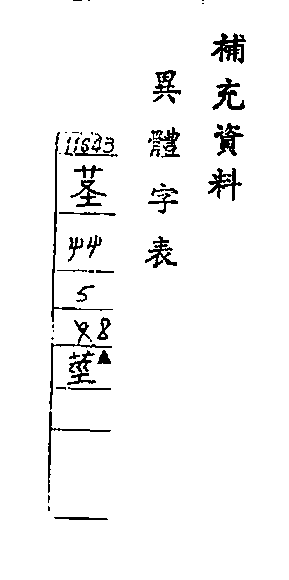 補充資料
異體字表
茎
艸
5
8
莖▲